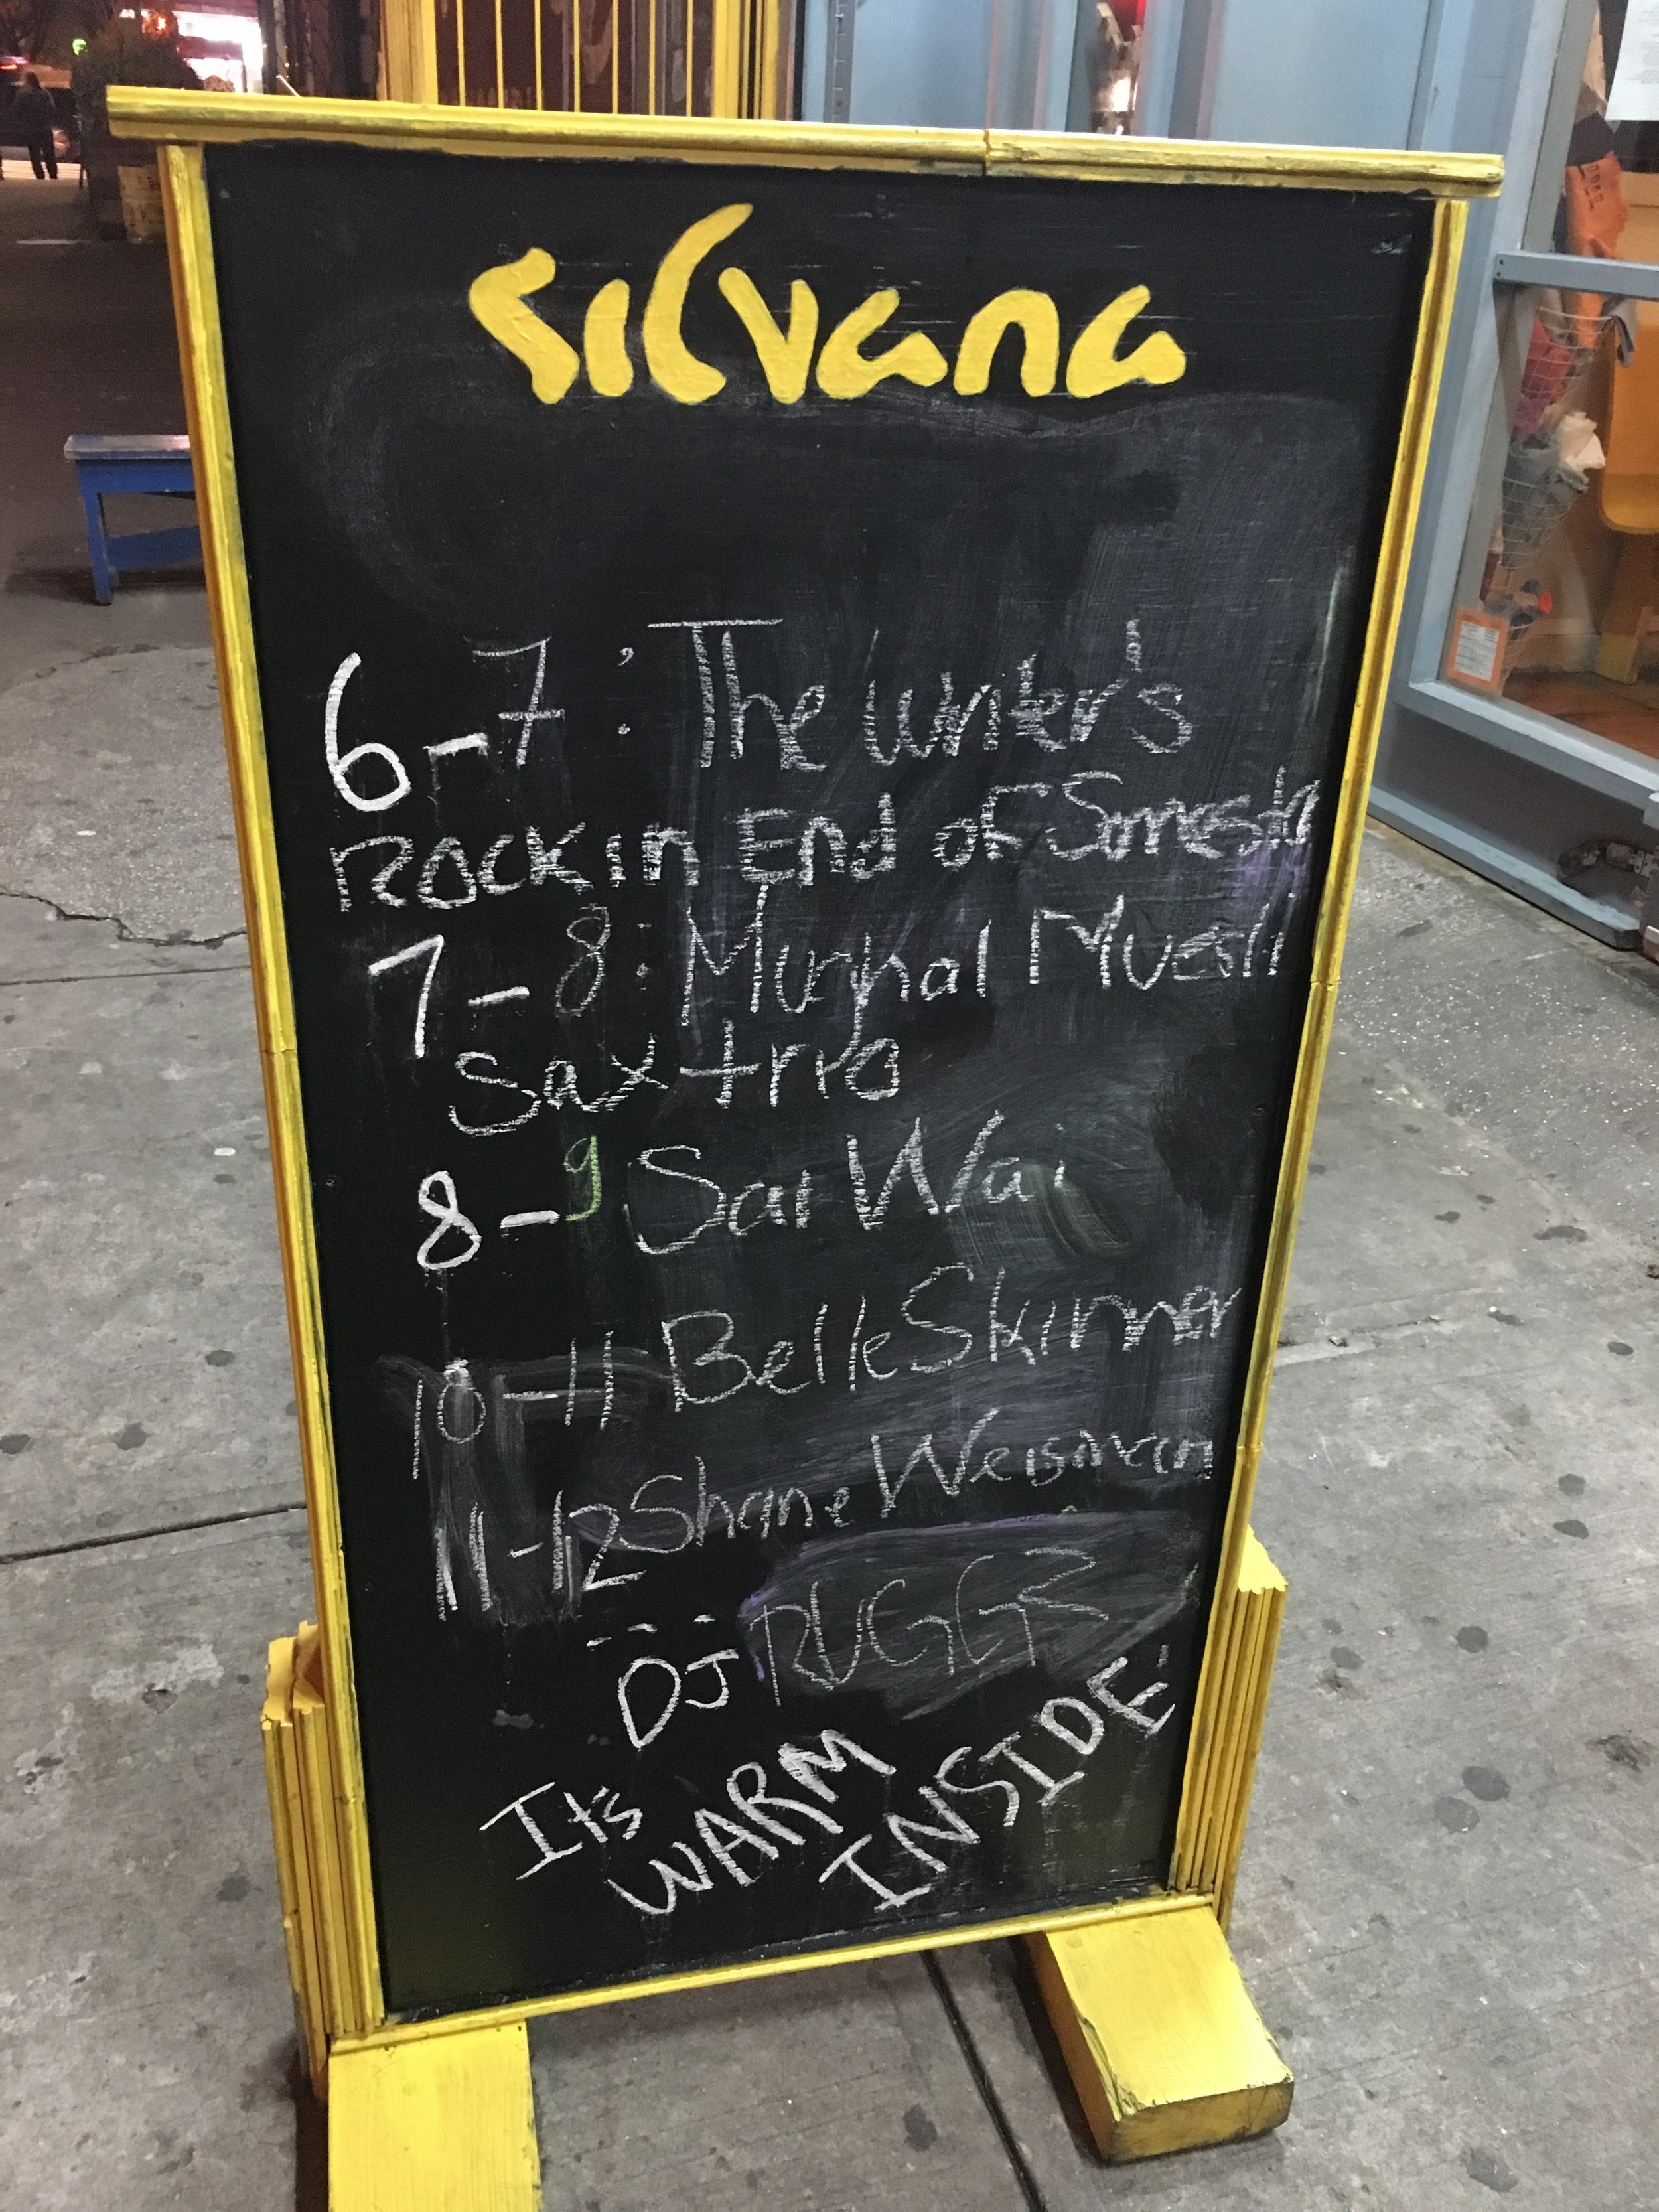 silvana
6-7: The Writer's
Rock in End of Smestr
7-8: Murphal Musli
Sax trio
8-9 Sai Wai
10-11 Belle Skinner
11-12 Shane Weisman
DJ RUGGZ
It's
WARM
INSIDE